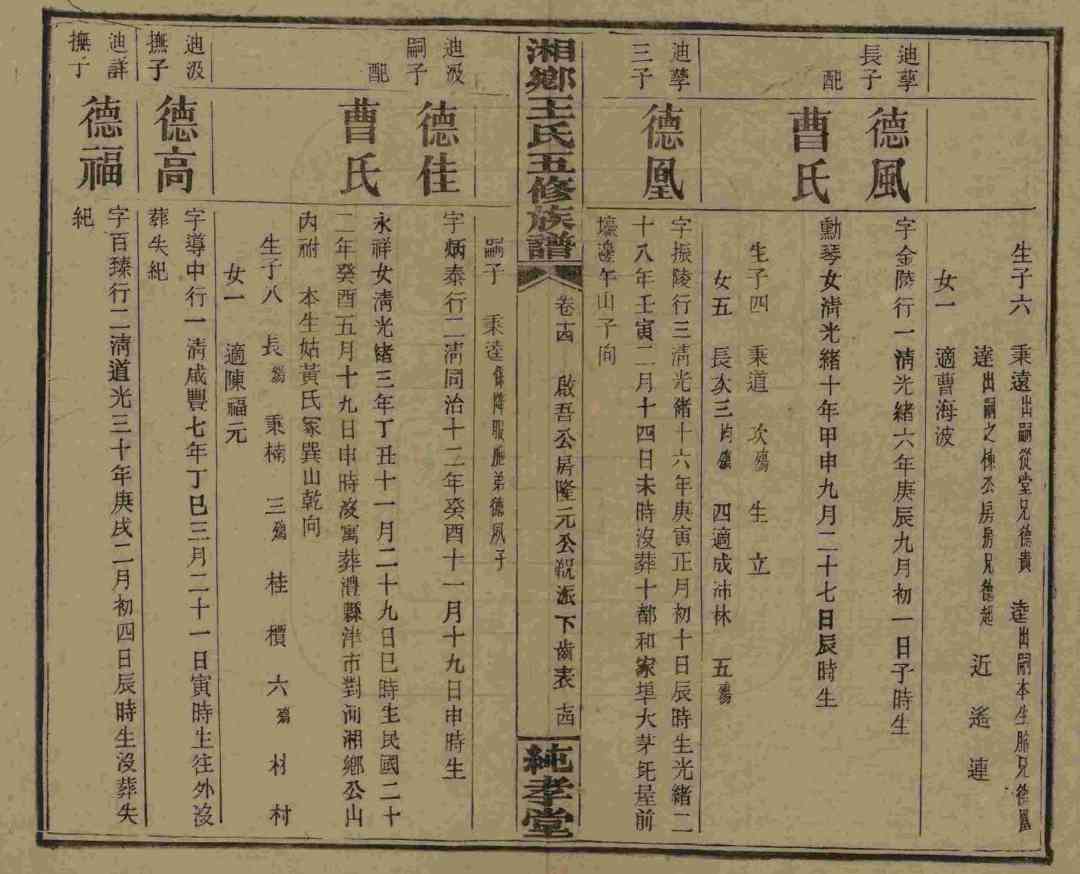 生子六 秉遠出嗣從堂兄德貴 逵出嗣本生胞兄德凰
達出嗣之棟公房房兄德超 近 遙 連
女一 適曹海波
迪孳長子 德風 字金陵行一清光緒六年庚辰九月初一日子時生
配 曹氏 勳琴女清光緒十年甲申九月二十七日辰時生
生子四 秉道 次殤 生 立
女五 長亥三均殤 四適成沛林 五殤
迪孳三子 德凰 字振陵行三清光緒十六年庚寅正月初十日辰時生光緒二
十八年壬寅二月十四日未時沒葬十都和家埠大茅屋前
壕邊午山子向
湘鄉王氏五修族譜 卷十四 啟吾公房隆元公派下齒表 純孝堂
嗣子 秉逵 胞弟德風子
迪汲嗣子 德佳 字炳泰行二清同治十二年癸酉十一月十九日申時生
配 曹氏 永祥女清光緒三年丁丑十一月二十九日巳時生民國二十
二年癸酉五月十九日申時沒寓葬澧縣津市對河湘鄉公山
內祔 本生姑黃氏冢巽山乾向
生子八 長殤 秉楠 三殤 桂 檟 六殤 材 村
女一 適陳福元
迪汲撫子 德高 字導中行一清咸豐七年丁巳三月二十一日寅時生往外沒
葬失紀
迪詳撫子 德福 字百臻行二清道光三十年庚戌二月初四日辰時生沒葬失
紀